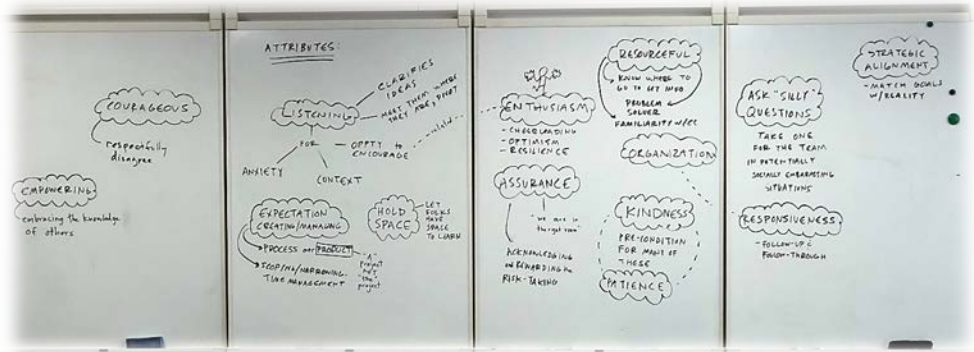 COURAGEOUS
respectfully
disagree
EMPOWERING
embracing the knowledge
of others
ATTRIBUTES:
LISTENING
CLARIFIES
IDEAS
MEET THEM WHERE
THEY ARE, PIVOT
FOR
OPPTY to
ENCOURAGE
related
ANXIETY
CONTEXT
EXPECTATION
CREATING/MANAGING
PROCESS over PRODUCT
"A"
project
NOT
"the"
project
SCOPING/NARROWING
TIME MANAGEMENT
HOLD
SPACE
LET
FOLKS
HAVE
SPACE
TO LEARN
ENTHUSIASM
- CHEERLEADING
- OPTIMISM
- RESILIENCE
ASSURANCE
"we are in
the right room"
ACKNOWLEDGING
REWARDING
RISK-TAKING
RESOURCEFUL
KNOW WHERE TO
GO TO GET INFO
PROBLEM
SOLVER
FAMILIARITY w/
ORGANIZATION
KINDNESS
PRE-CONDITION
FOR MANY OF
THESE
PATIENCE
ASK "SILLY"
QUESTIONS
TAKE ONE
FOR THE TEAM
IN POTENTIALLY
SOCIALLY EMBARASSING
SITUATIONS
RESPONSIVENESS
- FOLLOW-UP &
FOLLOW-THROUGH
STRATEGIC
ALIGNMENT
- MATCH GOALS
W/REALITY